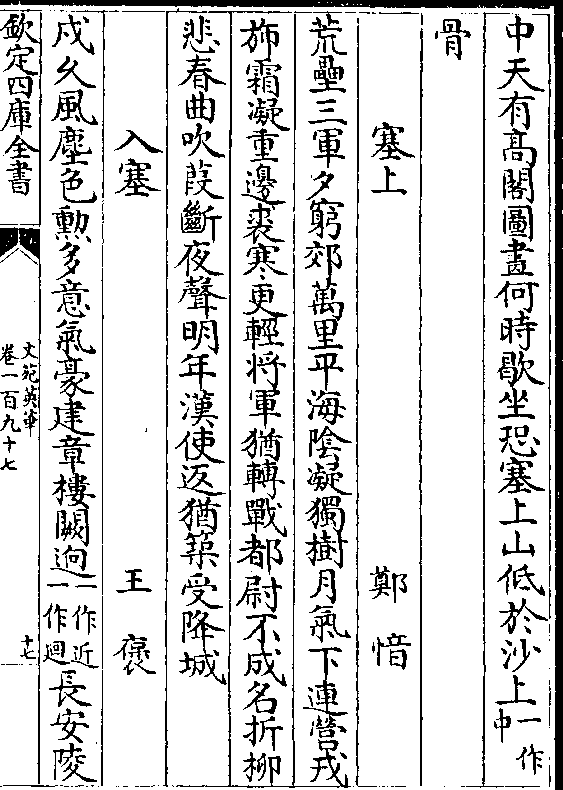 中天有髙閣圖畫何時歇坐恐塞上山低於沙上一作中
骨
塞上 鄭愔
荒壘三軍夕窮郊萬里平海陰凝獨樹月氣下連營戎
斾霜凝重邊裘寒更輕将軍猶轉戰都尉不成名折柳
悲春曲吹葭斷夜聲明年漢使返猶築受降城
入塞 王褒
戍久風塵色勲多意氣豪建章樓闕迥一作近一作廻長安陵
欽定四庫全書
文苑英華
卷一百九十七
十七